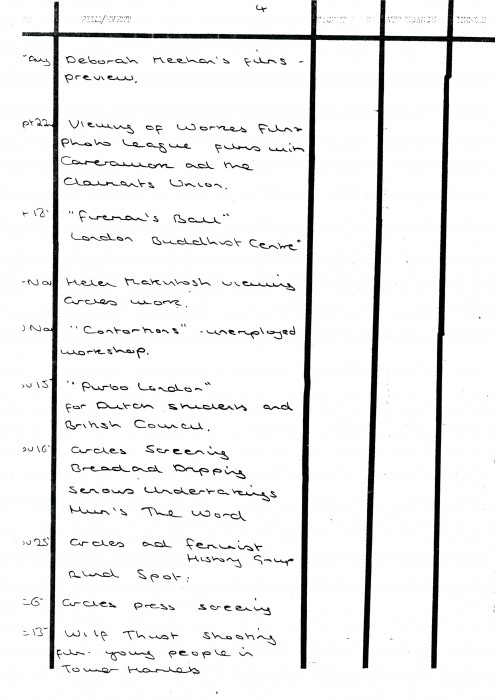 4
FILM/EVENT
Aug Deborah Meehan's films -
preview.
pt 22 Viewing of Workes Film +
photo League films with
Cameramork ad the
Claimants Union.
t 12 "Fireman's Ball"
London Buddhist Centre"
Nov Helen Makintosh viewing
circles work.
Nov "Contortions" - unemployed
workshop.
ov 15 "Purbo London"
for Dutch students and
British Council.
ov 16 circles screening
Bread ad Dripping
Serious Undertakings
Mum's The Word
ov 25 circles ad feminist
History Group
Blind Spot.
6 circles press screening
13 Wilf Thust shooting
film. young people in
Tower Hamlets